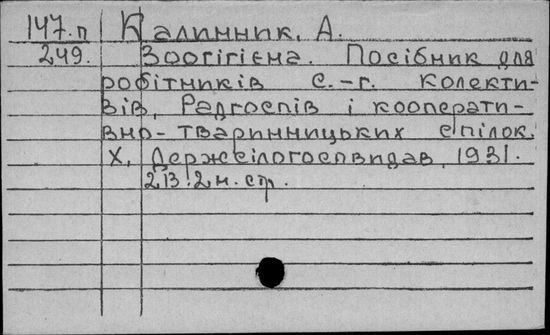 147.п Калинник, А.
249. Зоогігієна. Посібник для
робітників с.-г. колекти-
вів, Радгоспів і кооперати-
вно-тваринницьких спілок.
Х, Держсілогоспвидав, 1931.
213.2 н. стр.